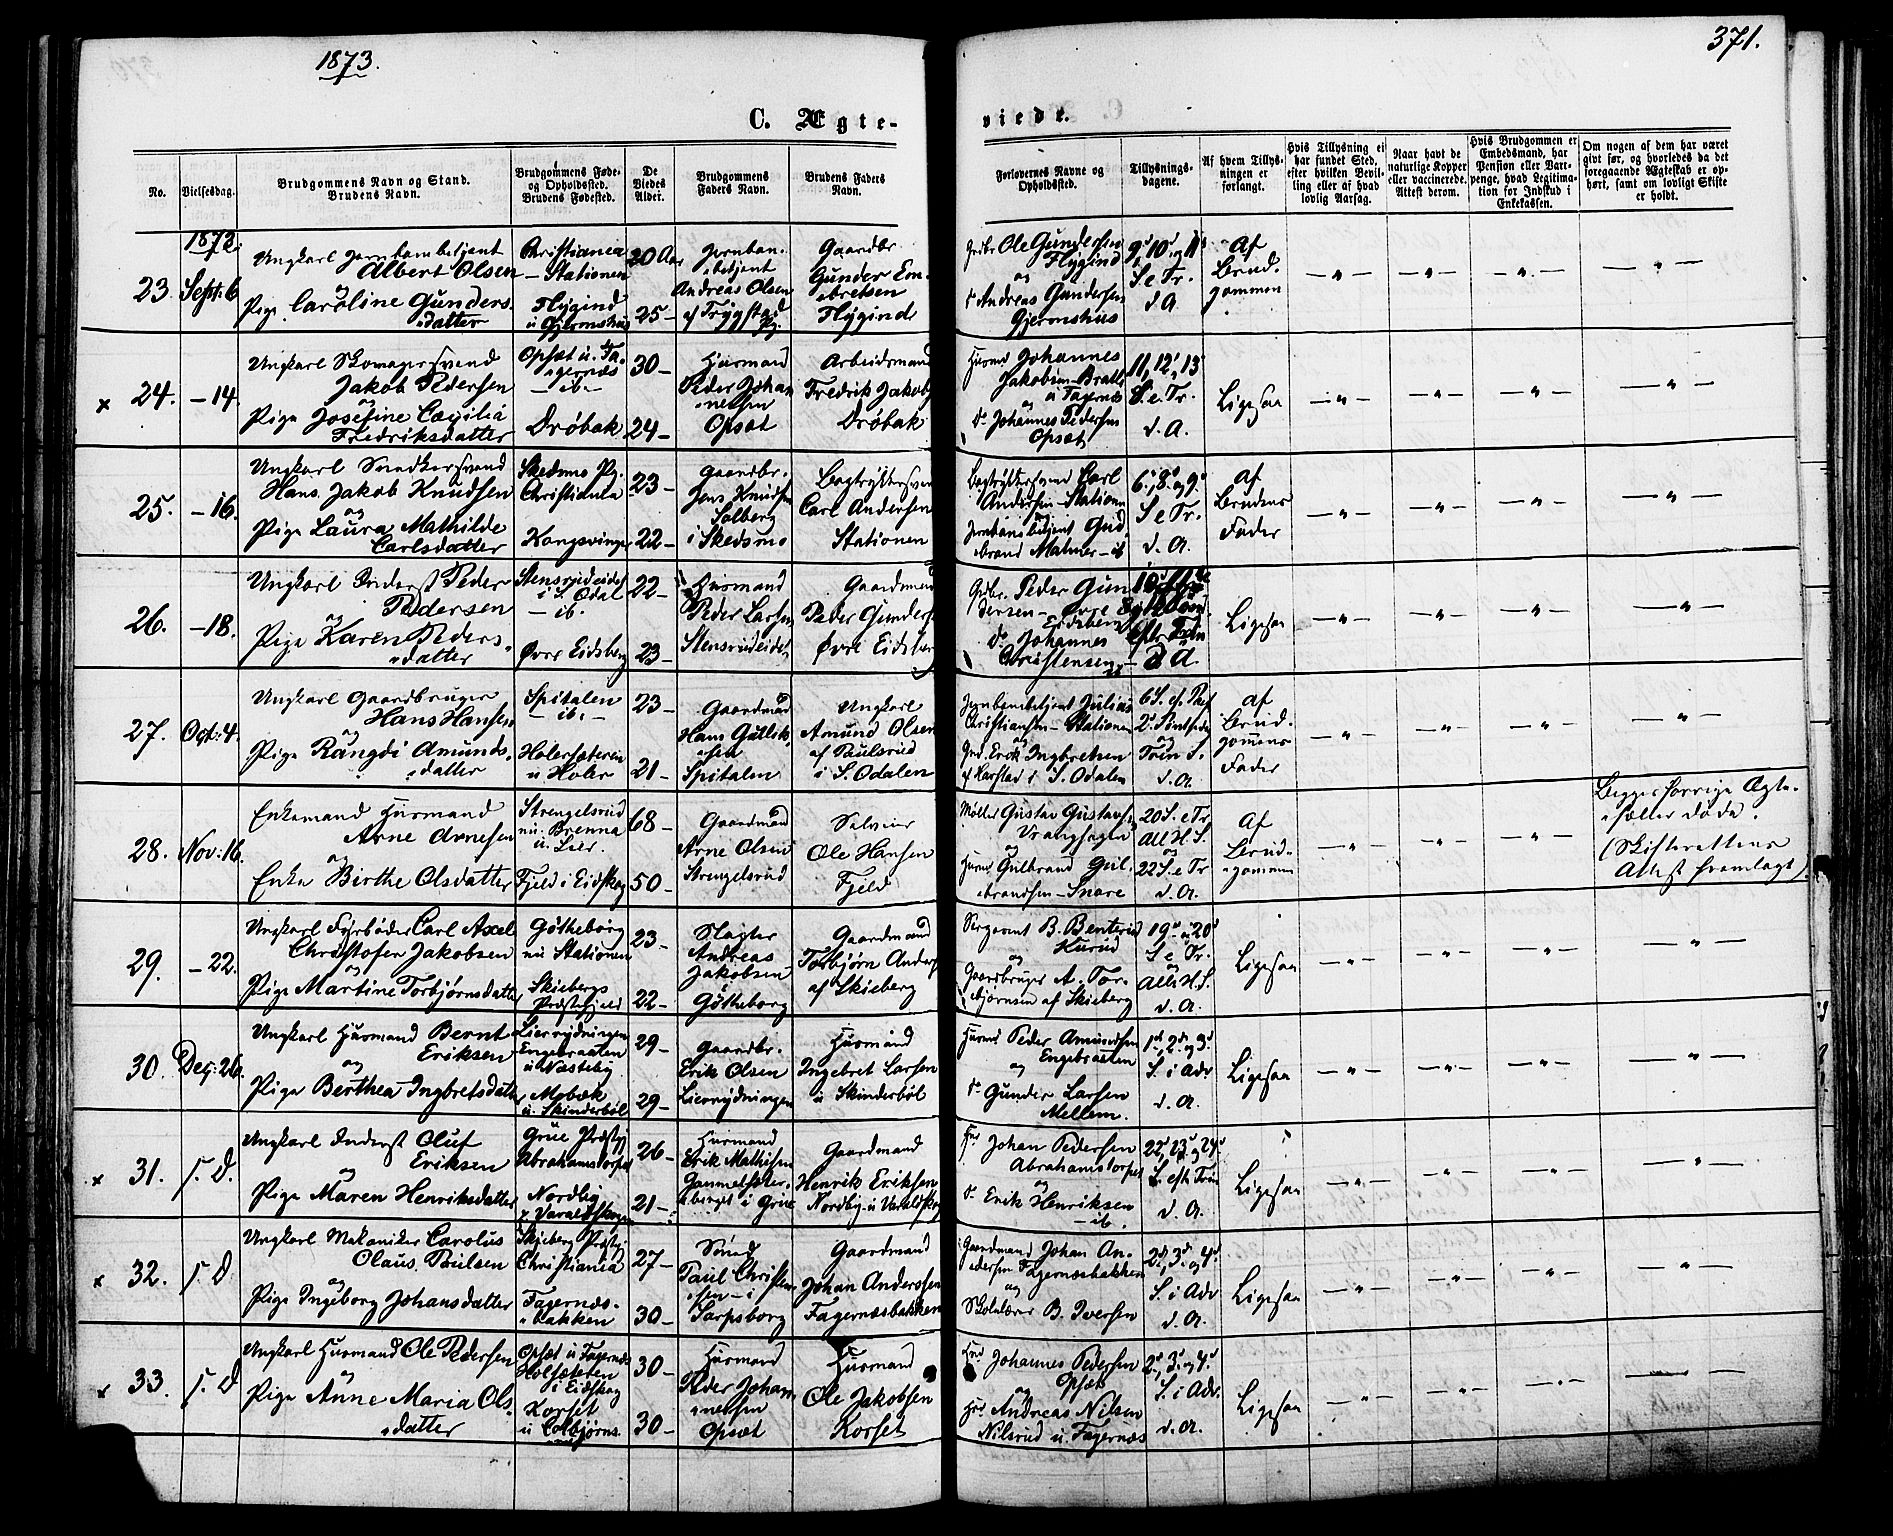 1873.
371.
C. Ægte-
viede.
No.
Vielsesdag.
Brudgommens Navn og Stand.
Brudens Navn.
Brudgommens Føde-
og Opholdssted.
Brudens Fødested.
De
Viedes
Alder.
Brudgommens
Faders Navn.
Brudens Faders
Navn.
Forlovernes Navne og
Opholdssted.
Tillysnings-
dagene.
Af hvem Tillys-
ningen er
forlangt.
Hvis Tillysning ei
har fundet Sted,
efter hvilken Bevil-
ling eller af hvad
lovlig Aarsag.
Naar havt de
naturlige Kopper
eller vaccinerede.
Attest derom.
Hvis Brudgommen er
Embedsmand, har
Pension eller Vart-
penge, hvad Legitima-
tion for Indskud i
Enkekassen.
Om nogen af dem har været
givt før, og hvorledes da det
foregaaende Ægteskab er op-
hørt, samt om lovligt Skifte
er holdt.
23.
1872.
Sept: 6
Ungkarl Jernbanebetjent
Albert Olsen
og
Pige Caroline Gunders-
datter
Christiania
- Stationen
Flygind
u Gjermshus
20 Aar
25 -
Jernban-
betjent
Andreas Olsen
af Trygstad
Pg.
Gaardbr
Gunder Em-
bretsen
Flygind
Grdbr Ole Gundersen
Flygind
og
do Andreas Gundersen
Gjermshus
9d, 10d og 11d
S. e Tr.
d. A.
Af
Brud-
gommen
x 24.
- 14.
Ungkarl Skomagersvend
Jakob Pedersen
og
Pige Josefine Cæcilia
Fredriksdatter
Opsæt u. Fa-
gernæs
- ib. -
Drøbak
30 -
24 -
Husmand
Peder Johan-
nesen
Opsæt
Arbeidsmand
Fredrik Jakobs
Drøbak
Husmd Johannes
Jakobsen - Bratli
u Fagernes
og
do Johannes Pedersen
Opsæt
11, 12 og 13
S. e. Tr.
d. A.
Ligesaa
25.
- 16.
Ungkarl Snedkersvend
Hans Jakob Knudsen
og
Pige Laura Mathilde
Carlsdatter
Skedsmo Pg.
Christiania
Kongsvinger
23 -
22 -
Gaardbr.
Jens Knudsen
Solberg
i Skedsmo
Bogtrykkersven
Carl Andersen
Stationen
Bogtrykkersvend Carl
Andersen - Stationen
Jernbanebetjent Gud-
brand Malmer - ib
6, 8d og 9d
S. e Tr.
d. A.
Af
Brudens
Fader
26.
- 18.
Ungkarl Inderst Peder
Pedersen
og
Pige Karen Peders-
datter
Stensrudeidet
i S. Odal
- ib.
Øvre Eidsberg
22 -
23 -
Husmand
Peder Larsen
Stensrudeidet
Gaardmand
Peder Gunders
Øvre Eidsber
Grdbr. Peder Gun-
dersen - Øvre
Eidsberg
do Johannes
Christensen -
Ligesaa
27.
Oct: 4.
Ungkarl Gaardbruger
Hans Hansen
og
Pige Rangdi Amunds-
datter
Spitalen
- ib. -
Holersæteren
u Holer
23 -
21 -
Gaardmand
Hans Gullik-
sen
Spitalen
Ungkarl
Amund Olsen
af Paulsrud
i S. Odalen
Jernbanebetjent Julius
Christiansen - Stationen
og
Grd. Erik Ingbretsen
af Harstad i S. Odalen
d. A.
Af
Brud-
gommens
Fader
28.
Nov: 16.
Enkemand Husmand
Arne Arnesen
og
Enke Birthe Olsdatter
Strengelsrud
nu Brenna
u. Lier.
Fjeld i Eidskog
68 -
50 -
Gaardmand
Arne Olsen
Strengelsrud
Selveier
Ole Hansen
Fjeld
Møller Gustav Gustavsen
Vranghagen
og
Husmd Gulbrand Gul-
brandsen - Snare
20 S. e Tr
All H. S.
og
22 S. e Tr
d. A.
Af
Brud-
gommen
Begges forrige Ægte-
fæller døde.
(Skifterettens
Attest fremlagt)
29.
- 22.
Ungkarl Fyrbøder Carl Axel
Christofer Jakobsen
og
Pige Martine Torbjørnsdatter
Götheborg
nu Stationen
Skiebergs
Præstegjeld
23 -
22 -
Slagter
Andreas
Jakobsen
Götheborg
Gaardmand
Torbjørn Anders
af Skieberg
Sergeant B. Benterud
Kurud
og
Gaardbruger A. Tor-
bjørnsen af Skieberg
19d og 20d
S. e Tr.
og
Alle H. S.
d. A.
Ligesaa
30.
Dec: 26.
Ungkarl Husmand Bernt
Eriksen
og
Pige Berthea Ingbretsdatter
Lierrydningen
Engebraaten
u Næsteby
Mobæk
u. Skinderbøl
29 -
29 -
Gaardbr.
Erik Olsen
Lierrydningen
Husmand
Ingebret Larsen
u Skinderbøl
Husmd Peder Amundsen
Engebraaten
og
do Gunder Larsen
Mellem.
1d, 2d og 3d
S. i Adv
d. A.
Ligesaa
x 31.
s. D.
Ungkarl Inderst Oluf
Eriksen
og
Pige Maren Henriksdatter
Grue Præstg
Abrahamstorpet
Nordby
i Varaldskogen
26 -
21 -
Husmand
Erik Mathisen
Gammelsæter-
berget i Grue
Gaardmand
Henrik Eriksen
Nordby u Varaldskog
Johan Pedersen
Abrahamstorpet
og
do Erik Henriksen
- ib.
22d, 23d og 24d
S. eft Trin
d. A.
Ligesaa
x 32.
s. D
Ungkarl Mekaniker Carolus
Olaus Paulsen
og
Pige Ingeborg Johansdatter
Skjeberg Præstg:
Christiania
Fagernæs-
bakken
27 -
30 -
Smed
Paul Christen-
sen - i
Sarpsborg
Gaardmand
Johan Anderssen
Fagernæsbakken
Gaardmand Johan An-
dersen Fagernæsbakken
og
Skolelærer B. Iversen
2d, 3d og 4d
S. i Adv
d. A.
Ligesaa
x 33.
s. D
Ungkarl Husmand Ole Pedersen
og
Pige Anne Maria Ols-
datter
Opsæt u Fagernæs
Holsæteren
i Eidskog
Korset
u Colbjørns-
30 -
30 -
Husmand
Peder Johan-
nesen
Opsæt
Husmand
Ole Jakobsen
Korset
Johannes Pedersen
Opsæt
og
Andreas Nilsen
Nilsrud u. Fagernæs
2d, 3d og 4d
S. i Adv.
d. A.
Ligesaa